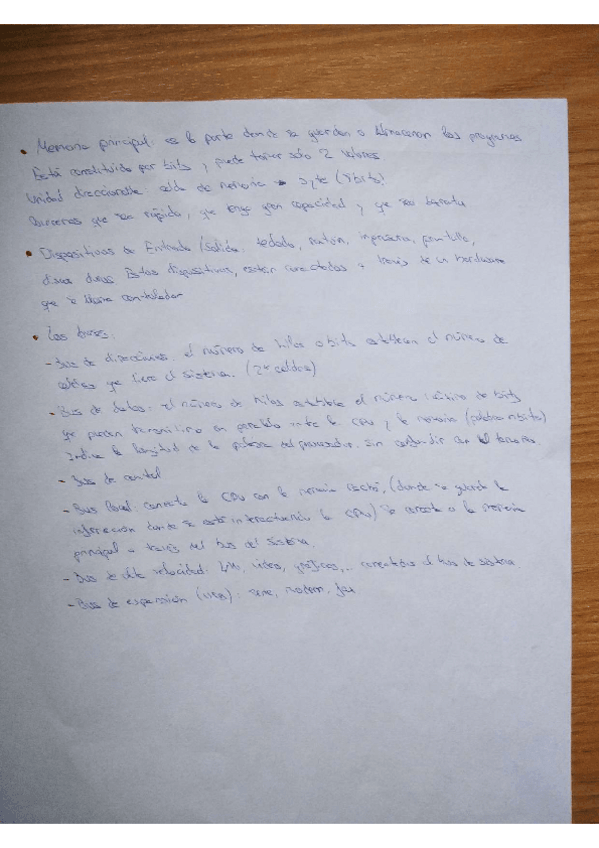 • Memoria principal: es la parte donde se guardan o almacenan los programas
Está constituida por bits y puede tener sólo 2 valores
Unidad direccionable: celda de memoria → byte (8 bits)
que sea rápida, que tenga gran capacidad y que sea barata
• Dispositivos de Entrada/Salida: teclado, ratón, impresora, pantalla,
discos duros. Estos dispositivos, están conectados a través de un hardware
que se llama controlador
• Los buses:
- Bus de direcciones: el número de hilos o bits establecen el número de
celdas que tiene el sistema. (2ⁿ celdas)
- Bus de datos: el número de hilos establece el número máximo de bits
que pueden transmitirse en paralelo entre la CPU y la memoria (palabra n bits)
Indica la longitud de la palabra del procesador. Sin confundir con el tamaño.
- Bus de control
- Bus local: conecta la CPU con la memoria caché, (donde se guarda la
información donde se está interactuando la CPU) se conecta a la memoria
principal a través del bus del sistema.
- Bus de alta velocidad: LAN, video, gráficos,... conectados al bus de sistema.
- Bus de expansión (USB): serie, modem, fax